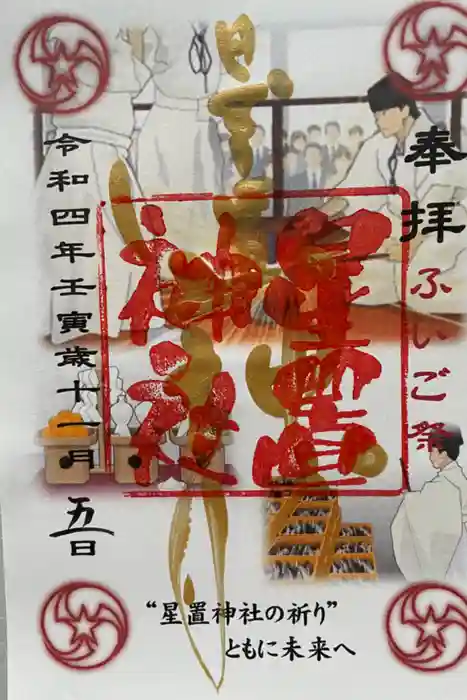 奉拝 ふいご祭
星置
神社
令和四年壬寅歳十一月五日
"星置神社の祈り"
ともに未来へ